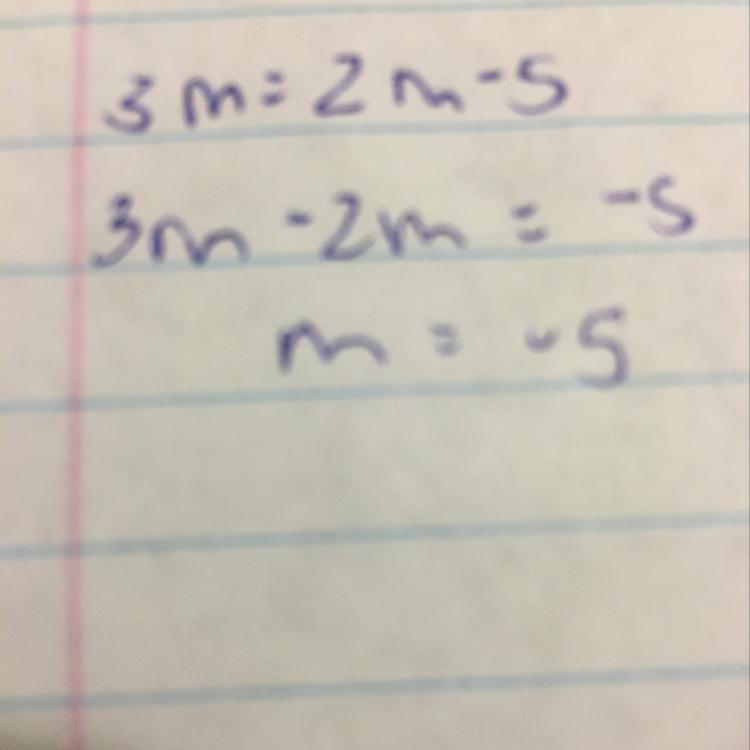 3m=2m-5
3m-2m = -5
m = -5